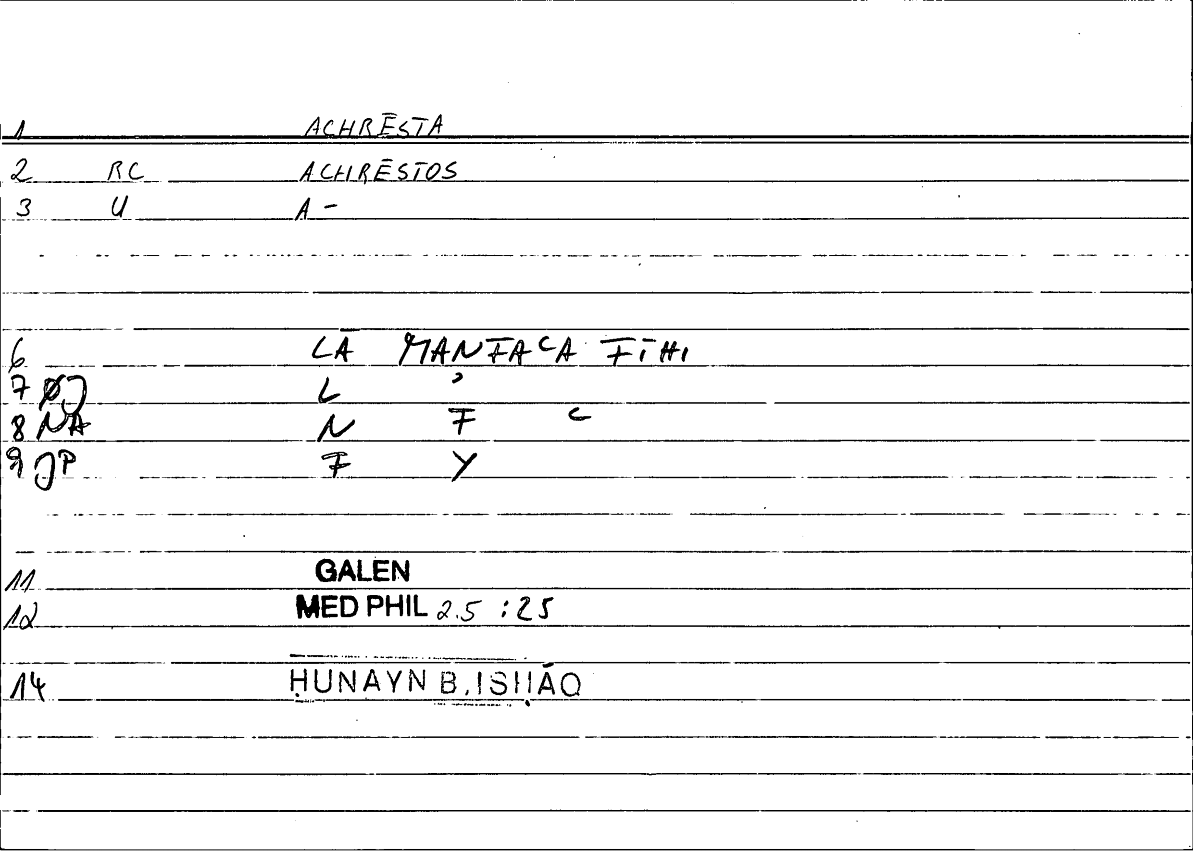 1 ACHRĒSTA
2 RC ACHRĒSTOS
3 U A-
6 LĀ MANFAʿA FĪHI
7 ØJ L ʾ
8 NA N F ʿ
9 JP F Y
11 GALEN
12 MED PHIL 2.5 :25
14 ḤUNAYN B. ISḤĀQ